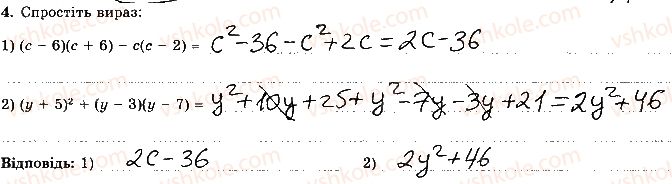 4. Спростіть вираз:
1) (c – 6)(c + 6) – c(c – 2) = c² - 36 - c² + 2c = 2c - 36
2) (y + 5)² + (y – 3)(y – 7) = y² + 10y + 25 + y² - 7y - 3y + 21 = 2y² + 46
Відповідь: 1) 2c - 36 2) 2y² + 46